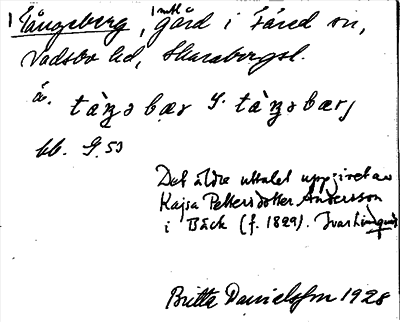 Tångeberg, 1 mtl gård i Färed sn,
Vadsbo hd, Skarabergsl.
ä. tàŋəbær y. tàŋəbærj
bb. 9.53
Det äldre uttalet uppgivet av
Kajsa Pettersdotter Andersson
i Bäck (f. 1829). Ivar Lindquist
Britta Danielsson 1928